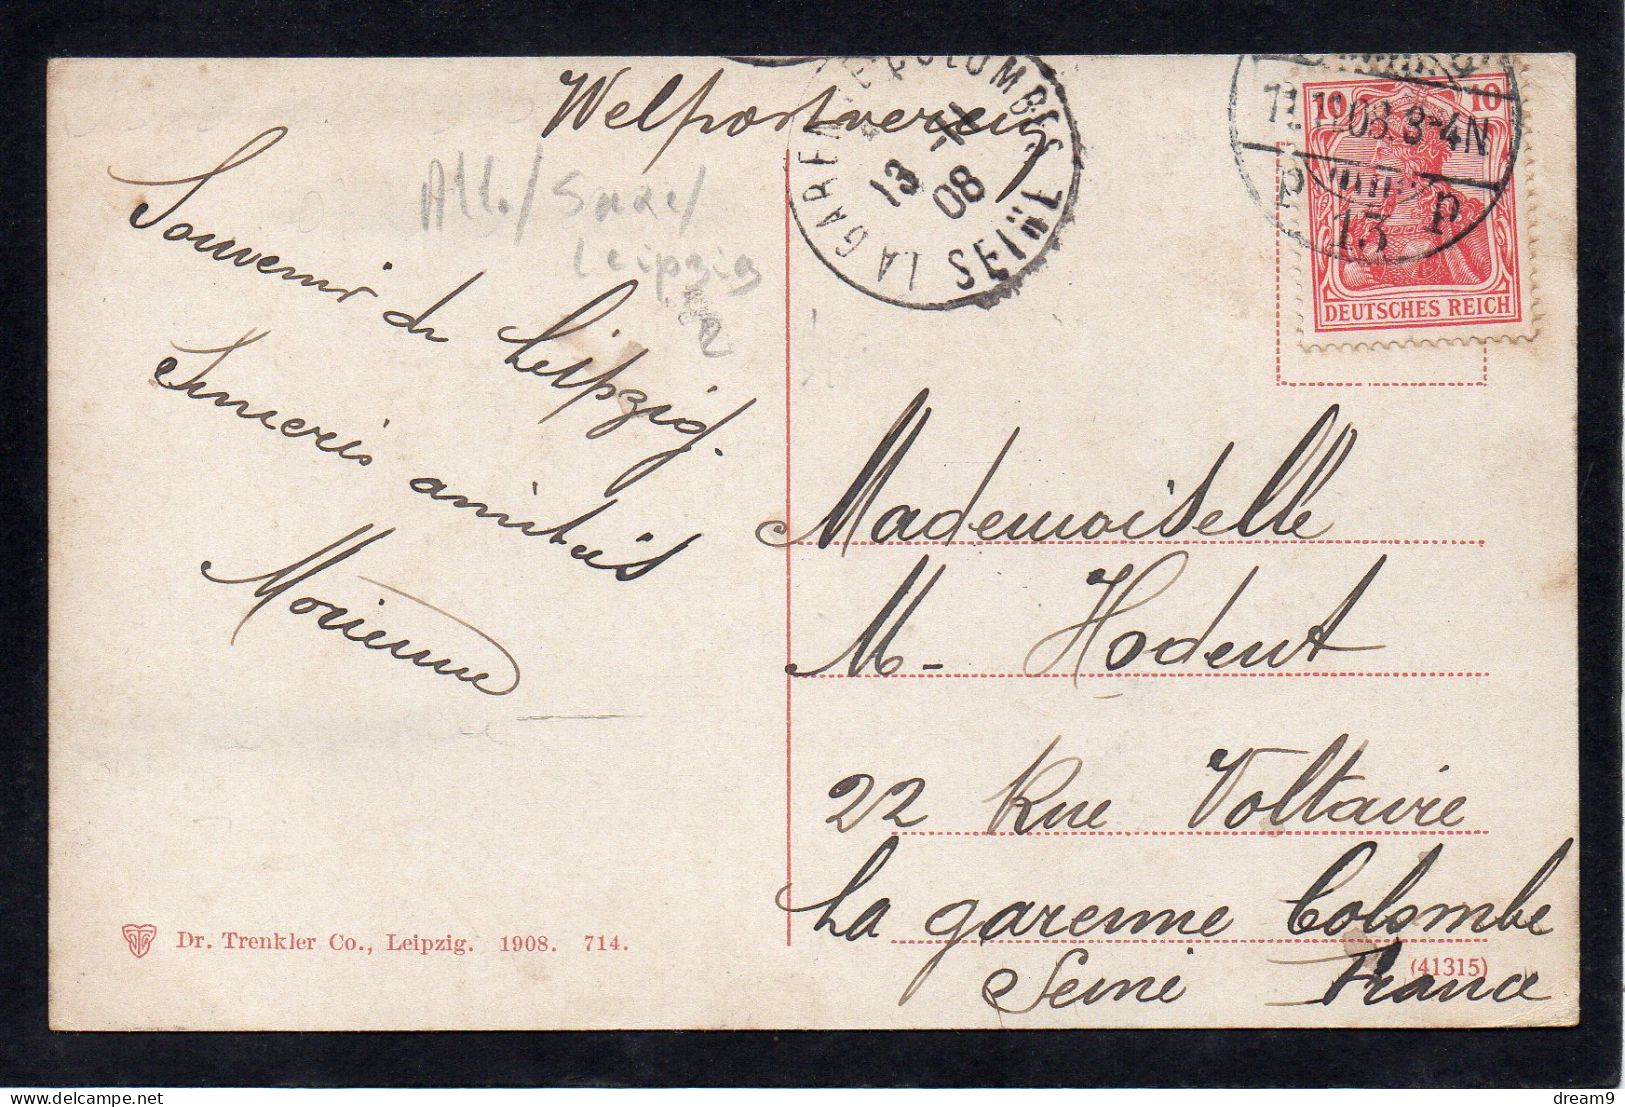 Welpostverein
All./Saxe/
Leipzig
2
Souvenir de Leipzig.
Sincères amitiés
LA GARENNE COLOMBES
13 - 11
08
SEINE
08 3-4N
13 P
10 10
DEUTSCHES REICH
Mademoiselle
M- Hodent
22 Rue Voltaire
La garenne Colombe
Seine France
Dr. Trenkler Co., Leipzig. 1908. 714.
(41315)
dream9